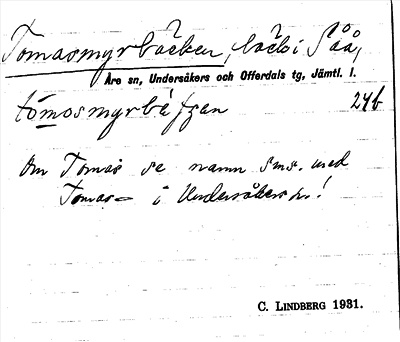 Tomasmyrbäcken, bäck i Såå,
Åre sn, Undersåkers och Offerdals tg, Jämtl. l.
tomosmyrbä 24b
Om Tomas se namn sms. med
Tomas- i Undersåkers sn!
C. LINDBERG 1931.